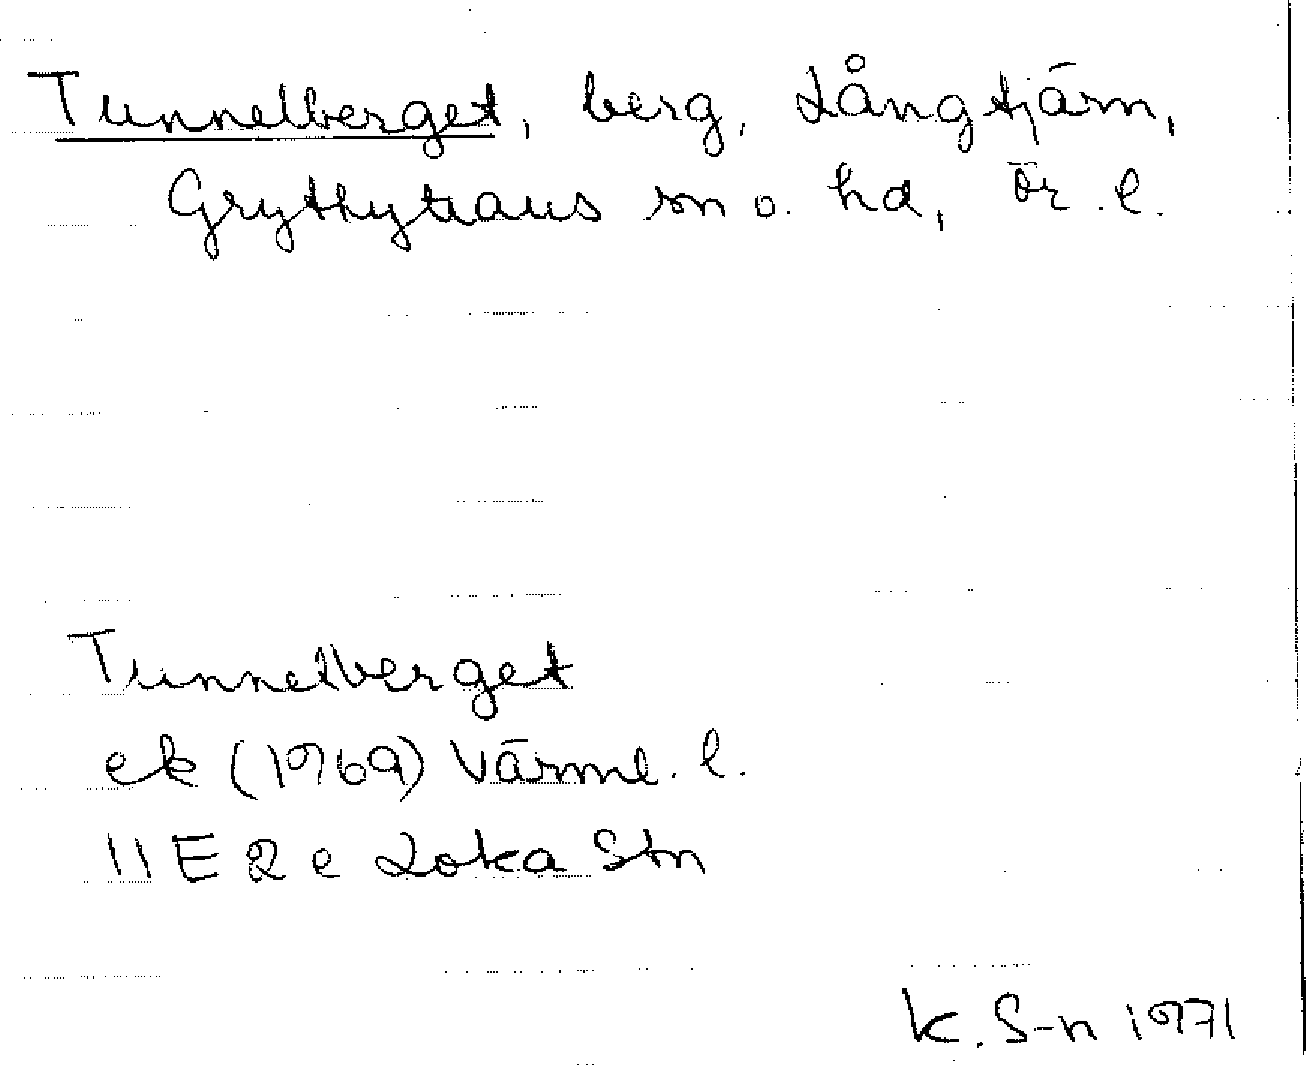 Tunnelberget, berg, Långtjärn,
Grythyttans sn o. hd, Ör. l.
Tunnelberget
ek (1969) Värml. l.
11 E 2 e Loka Stn
K. S-n 1971